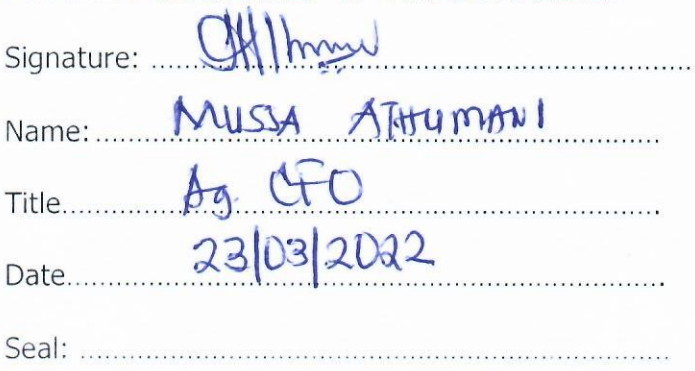 Signature:
Name: MUSSA ATHUMANI
Title Ag. CFO
Date 23/03/2022
Seal: